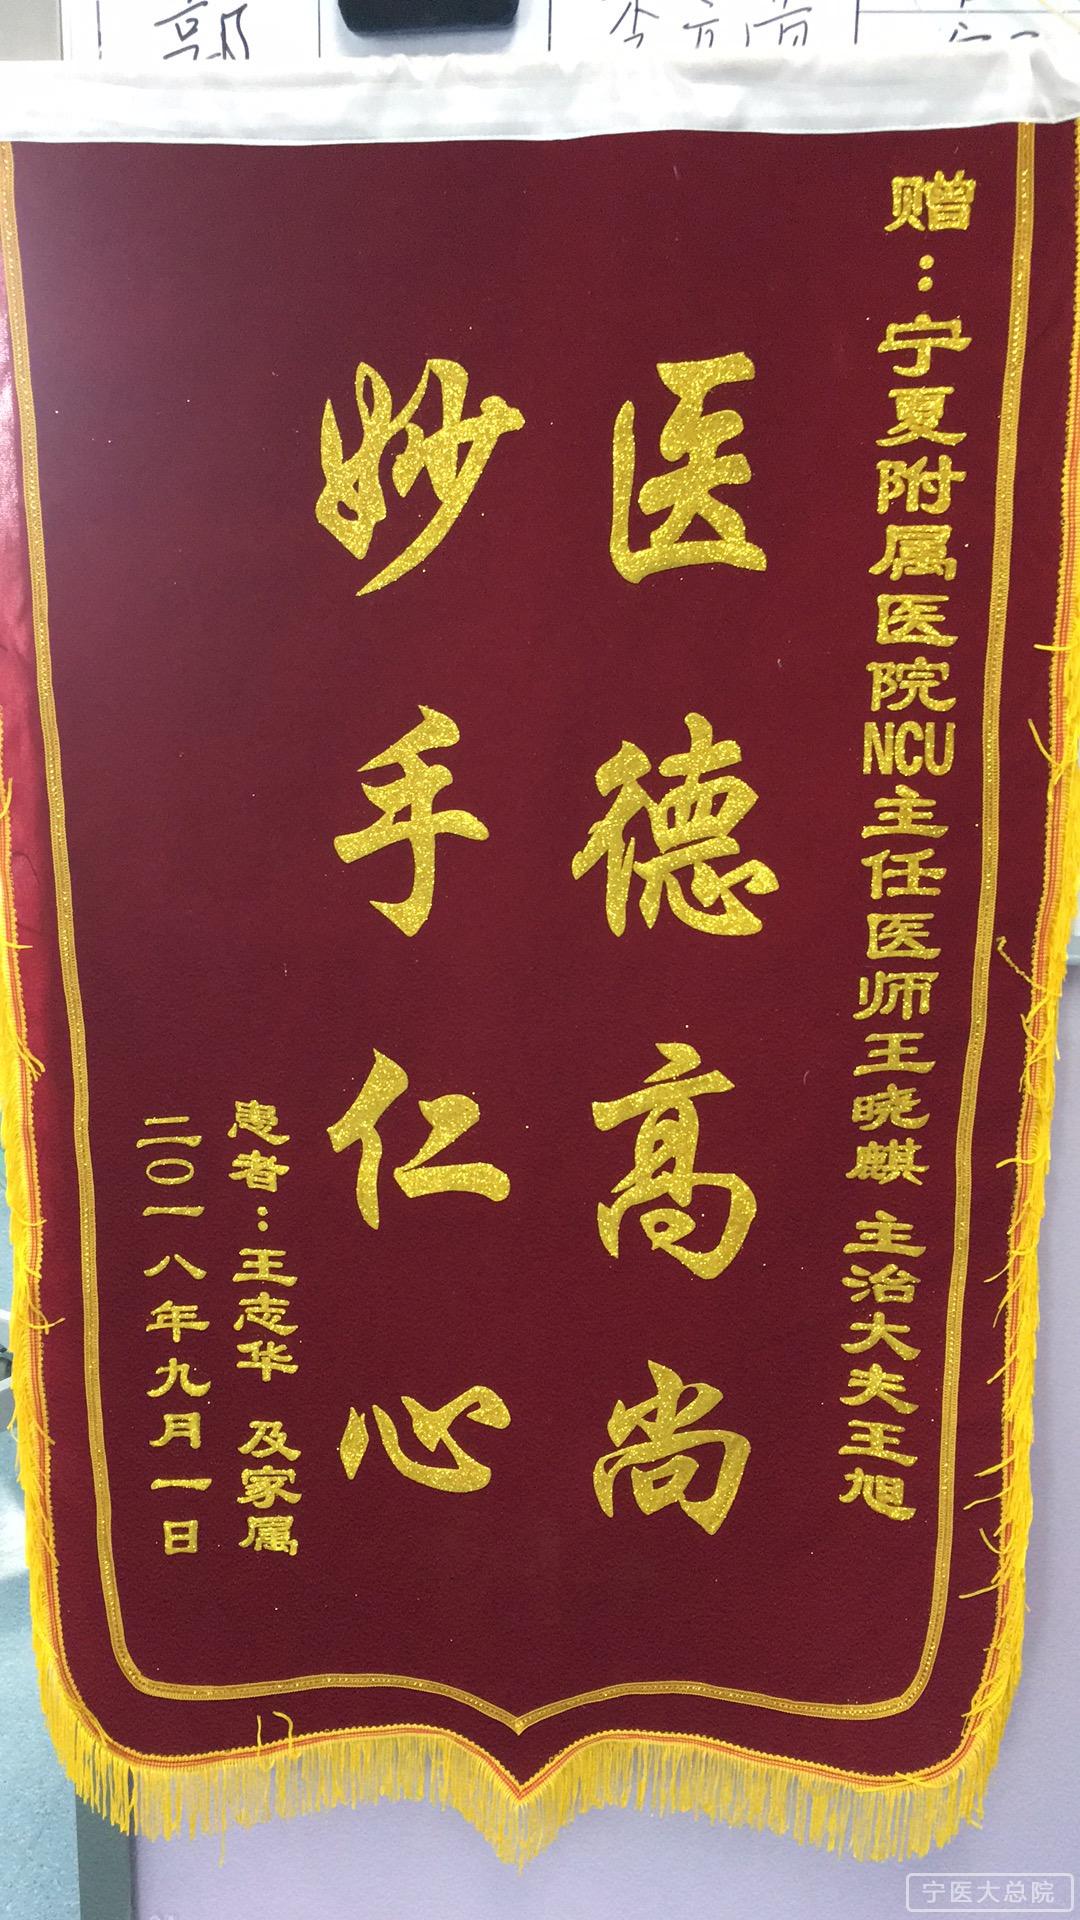 赠：宁夏附属医院NCU主任医师王晓麒 主治大夫王旭
医德高尚
妙手仁心
患者：王志华 及家属
二〇一八年九月一日
郭
宁医大总院